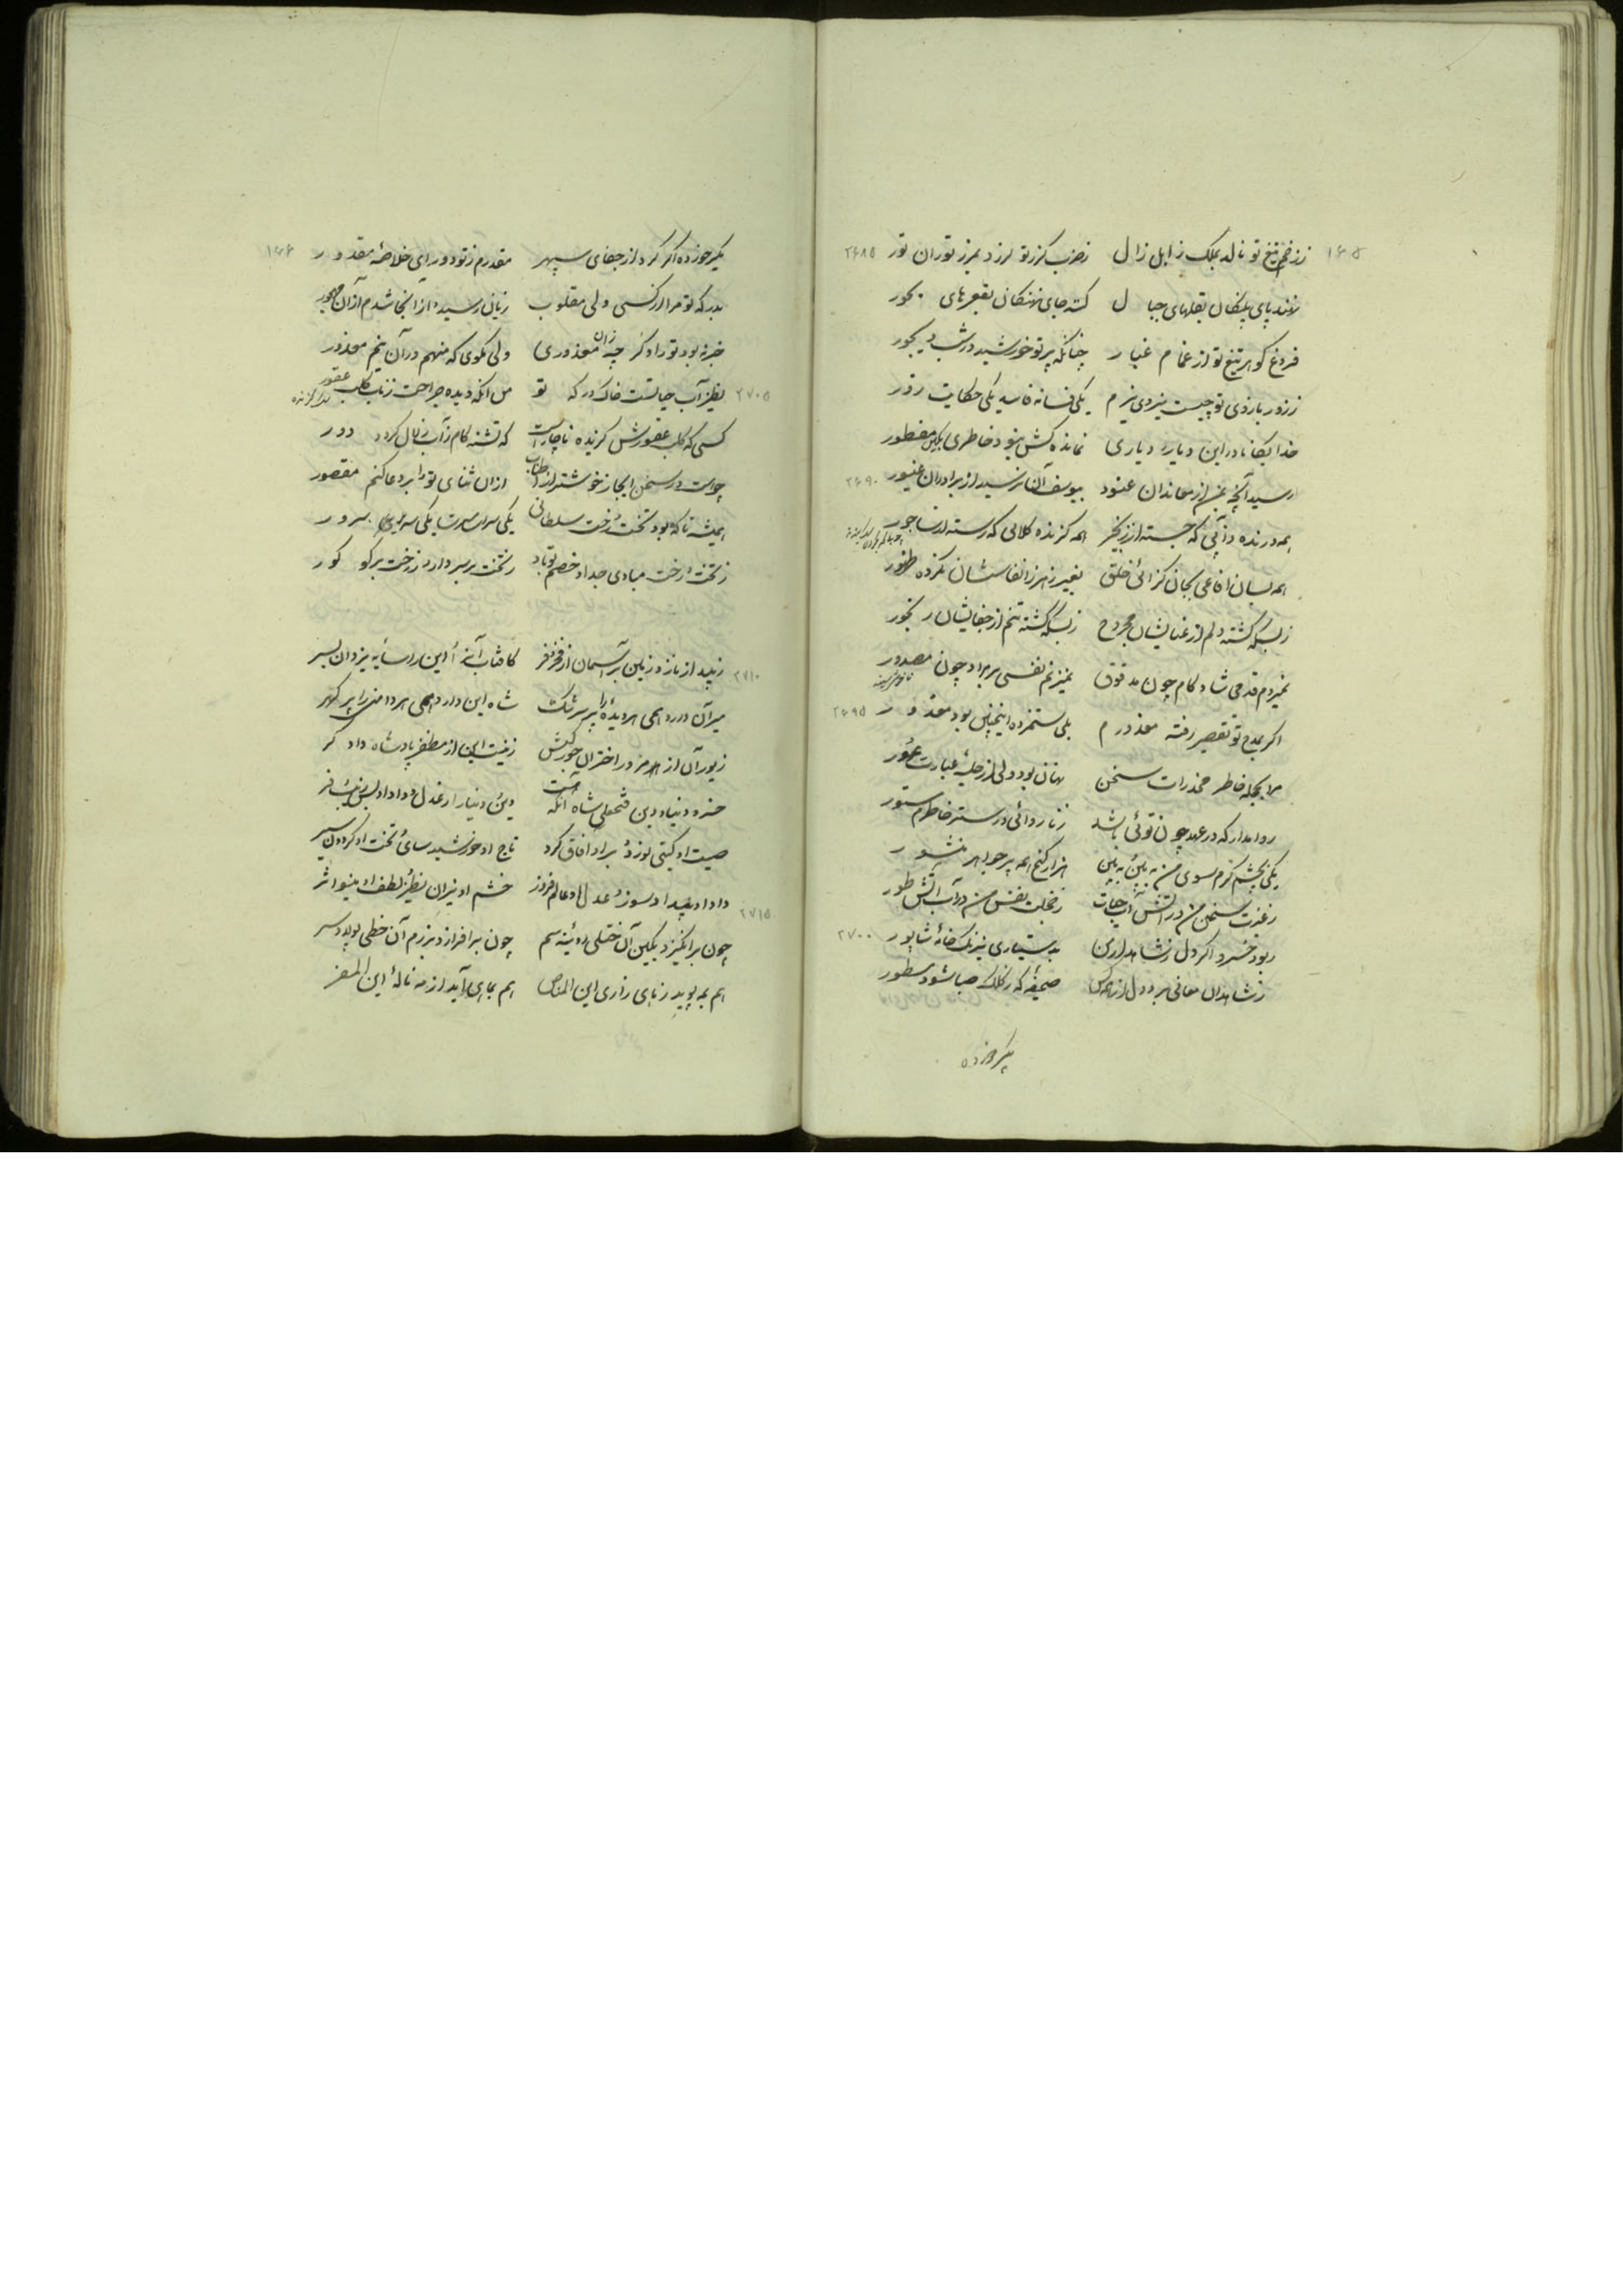 ۱۶۵
ز زخم تیغ تو نالد بملک زابل زال زضرب گرز تو لرزد بمرز توران تور ۲۶۸۵
پای پلنگان بقلهای جبال جای نهنگان بقعرهای بحور
فروغ گوهر تیغ تو از غمام غبار چنانکه پرتو خورشید در شب دیجور
ز زور بازوی تو چیست نیروی نیرم یکی فسانه فاسد یکی حکایت زور
خدایگانا در این دیار دیاری نمانده کش بنود خاطری بکین مفطور
رسید آنچه بمن از معاندان عنود بیوسف آن نرسید از برادران غیور ۲۶۹۰
همه درنده که جسته از زنجیر همه گزنده کلابی که رسته از ساجور
همه بسان افاعی بجان گزائی خلق بغیر زهر ز انفاسشان نکرده ظهور
زبسکه گشته دلم از عنایشان مجروح زبسکه گشته تنم از جفایشان رنجور
نمیزدم قدمی شاد کام چون مدقوق نمیزنم نفسی بر مراد چون مصدور
اگر بمدح تو تقصیر رفته معذورم بلی ستمزده اینچنین بود معذور ۲۶۹۵
مرا بحجله خاطر مخدرات سخن نهان بود ولی از حلیه عبارت عور
روا مدار که در عهد چون توئی باشد ز ناروائی در ستر خاطرم مستور
یکی بچشم کرم سوی من ببین به بین هزار گنج همه پر جواهر منثور
ز غیرت سخن من در آتش آب حیات ز خجلت نفس من در آب آتش طور
ربود خسرو اگر دل ز شاهد ارمن بدستیاری نیرنگ خامه شاپور ۲۷۰۰
ز شاهدان معانی برد دل از همه کس صحیفه که ز کلک صبا شود مسطور
۱۶۶
اگر کرد از جفای سپهر مقدرم ز تو دور ای خلاصه مقدور
بدرگه تو مرا از کسی ولی مقلوب زیانی رسید از آنجا شدم از آن مهجور
خبر نبود تو را وگر چه زان معذوری ولی مگوی که منهم در آن نیم معذور
نظیر آب حیاتست خاک درگه تو من آنکه دیده جراحت ز ناب کلب عقور ۲۷۰۵
کسی که کلب عقورش گزیده ناچار است که تشنه کام ز آب زلال گردد دور
چو هست در سخن ایجاز خوشتر از اطناب از آن ثنای تو را بر دعا کنم مقصور
همیشه تا که بود تخت و رخت سلطانی یکی یکی سرور
ز تخت و رخت مبادی جدا و خصم تو باد ز تخت بر سر دار و ز رخت بر گو گور
زیبد از نازد زمین بر آسمان از فخر و فر کافتاب آنرا این را سایه یزدان بسر ۲۷۱۰
میر آن دارد همی هر دیده را پر سرشک شاه این دارد همی هر دامن را پر گهر
زیور آن از هرمز در اختران زینت این از مظفر پادشاه دادگر
خسرو دنیا و دین فتحعلی شاه آنکه هست
صیت او گیتی نورد بر او آفاق گرد تاج او خورشید سای و تخت او گردون سپر
داد او بیداد سوز و عدل او عالم فروز خشم او نیران نظیر و لطف او مینو اثر ۲۷۱۵
چون برانگیزد بکین آن ختلی روئینه سم چون برافرازد برزم آن خطی پولاد سر
هم بمه پوید ز نای زاری این المناص هم بماهی آید از مه ناله این المفر